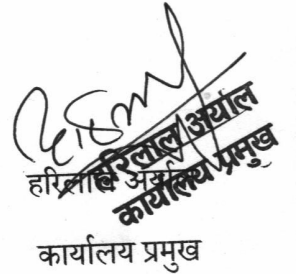 हरिलाल अर्याल
कार्यालय प्रमुख
हरिलाल अर्याल
कार्यालय प्रमुख